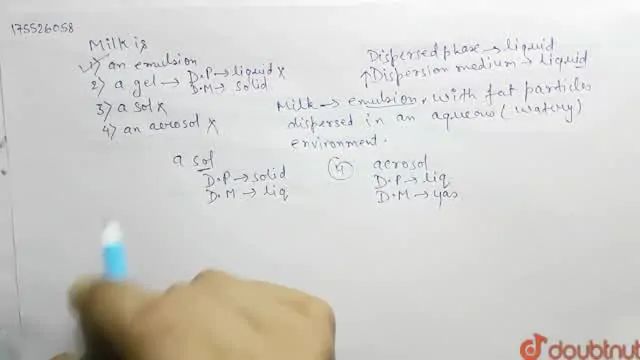 175526058
Milk is
1) an emulsion
2) a gel → D.P → liquid x
D.M → solid
3) a sol x
4) an aerosol x
Dispersed phase → liquid
↑ Dispersion medium → liquid
Milk → emulsion, with fat particles
dispersed in an aqueous (watery)
environment.
a sol
D.P → solid
D.M → liq
4 aerosol
D.P → liq
D.M → gas
doubtnut